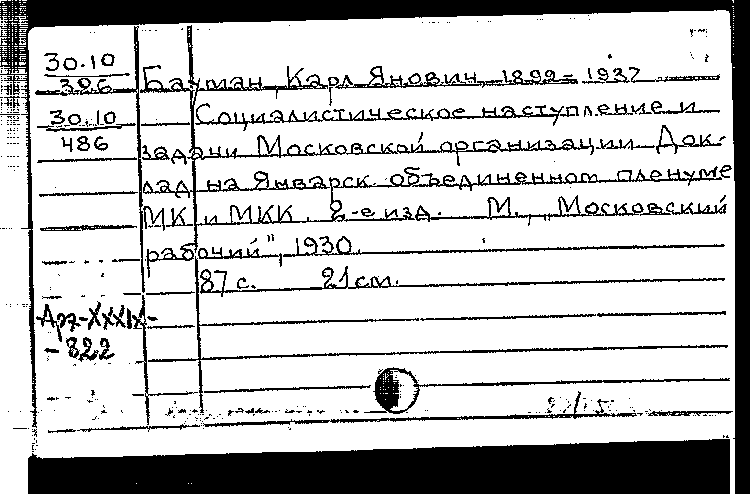 30.10
396
Бауман, Карл Янович, 1892-1937
30.10
486
Социалистическое наступление и
задачи Московской организации. Док-
лад на Январск. объединенном пленуме
МК и МКК. 2-е изд. М., „Московский
рабочий", 1930.
87 с. 21 см.
Арх-XXXIX-
-822